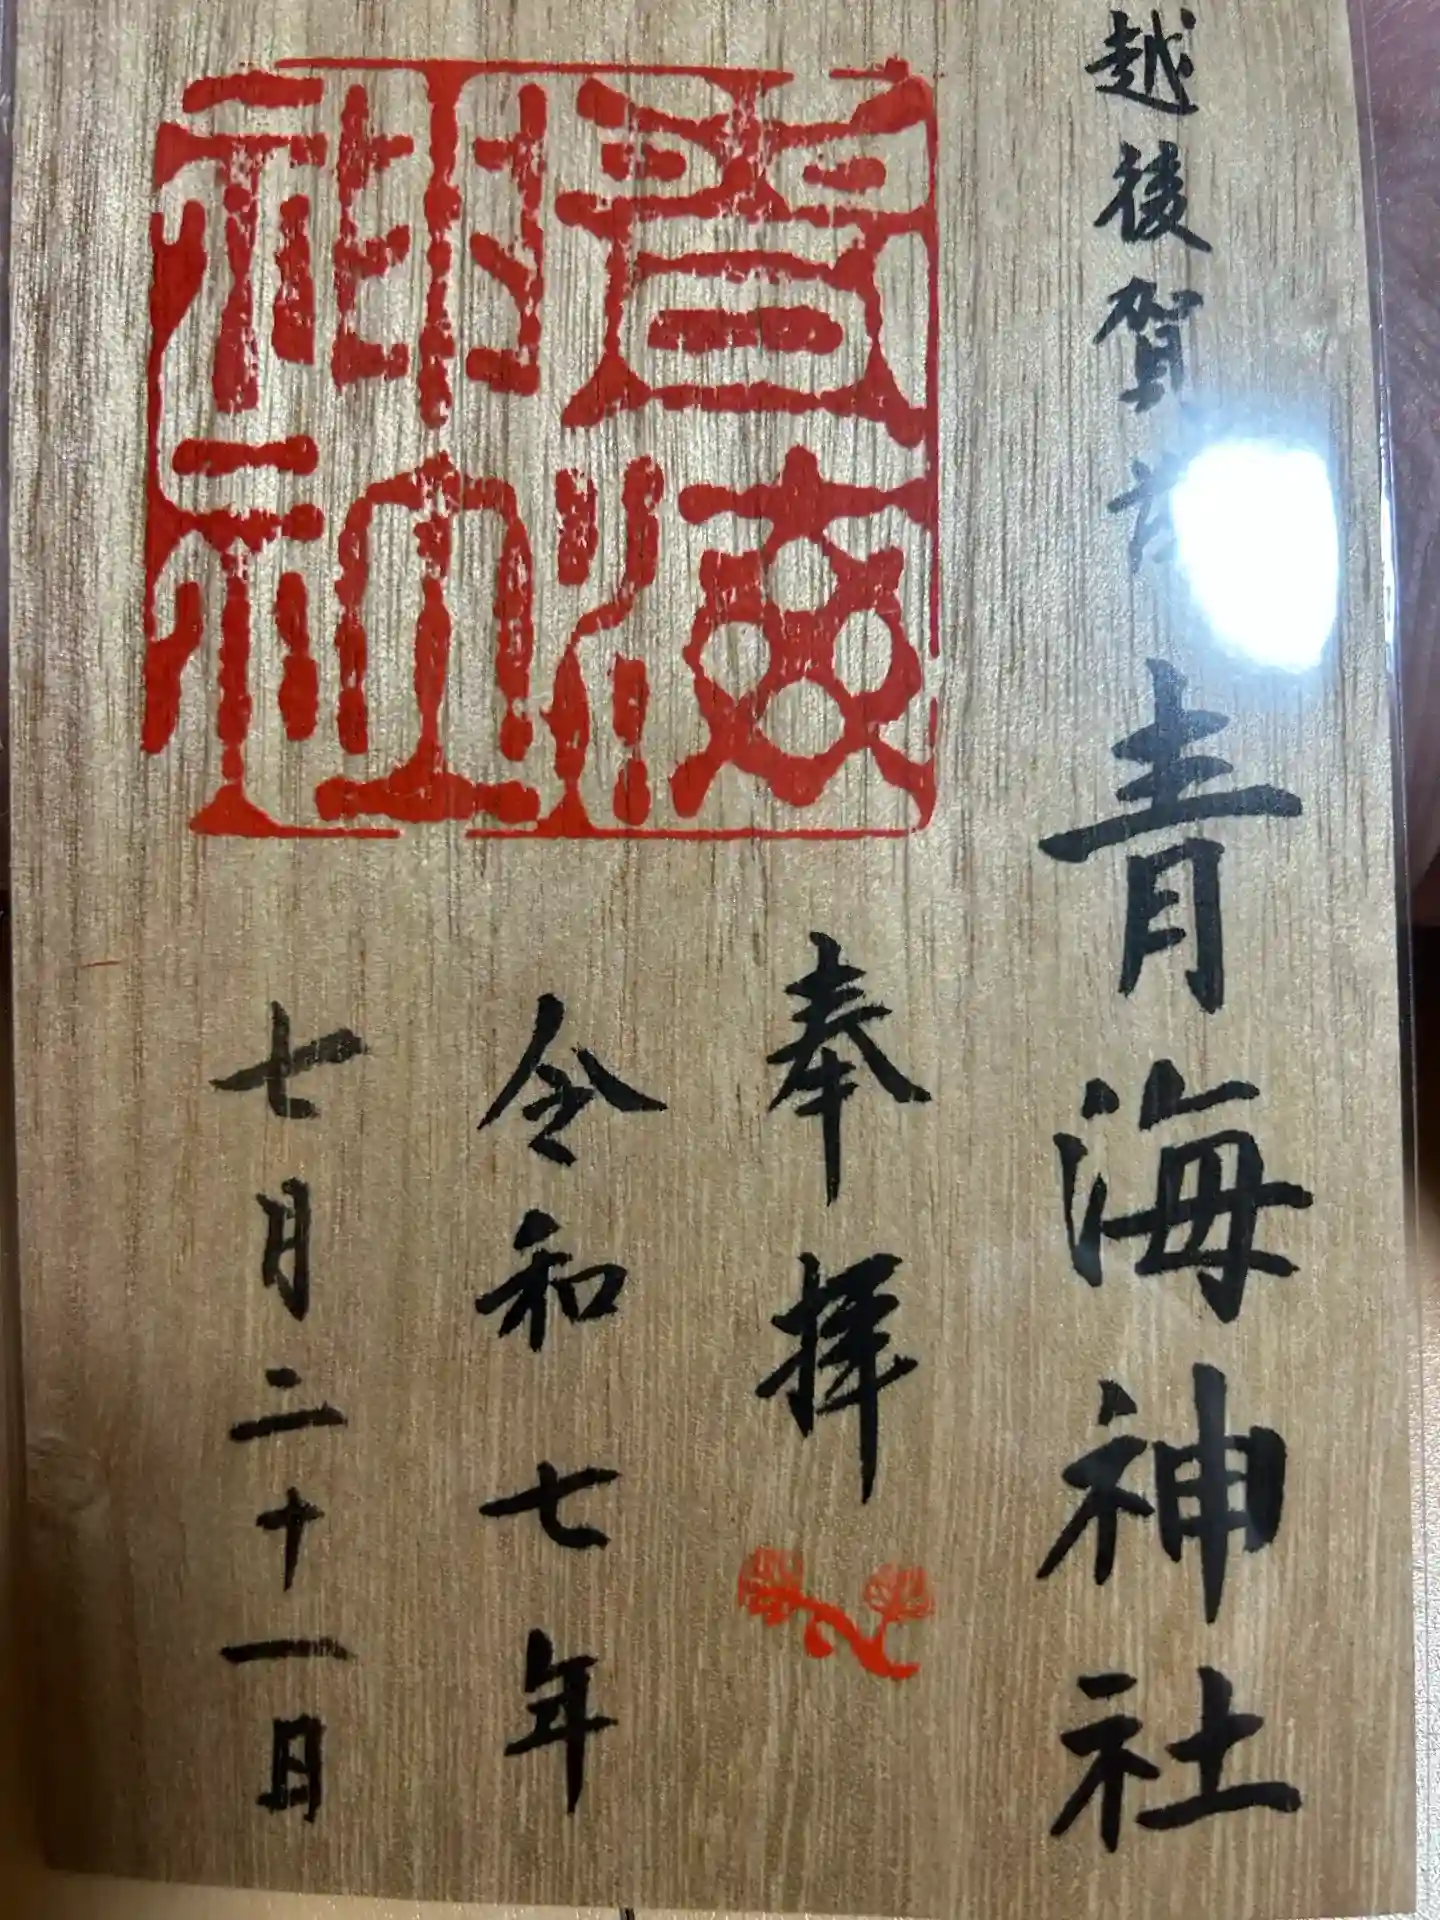 越後賀茂
青海神社
奉拝
令和七年
七月二十一日
青海神社